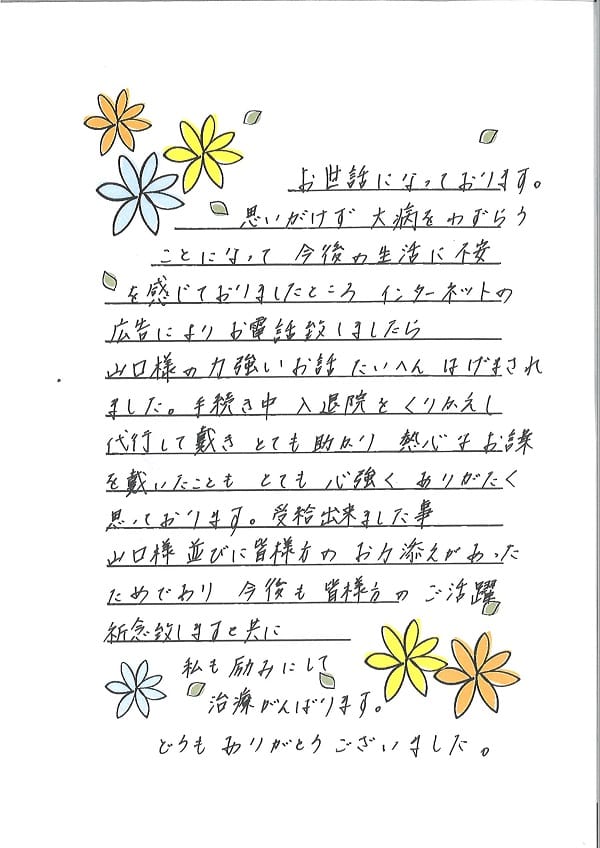 お世話になっております。
思いがけず 大病をわずらう
ことになって 今後の生活に不安
を感じておりましたところ インターネットの
広告により お電話致しましたら
山口様の力強いお話 たいへん はげまされ
ました。手続き中 入退院をくりかえし
代行して戴き とても助かり 熱心なお話
を戴いたことも とても 心強く ありがたく
思っております。受給出来ました事
山口様並びに皆様方の お力添えがあった
ためであり 今後も 皆様方の ご活躍
祈念致しますと共に
私も励みにして
治療がんばります。
どうも ありがとう ございました。